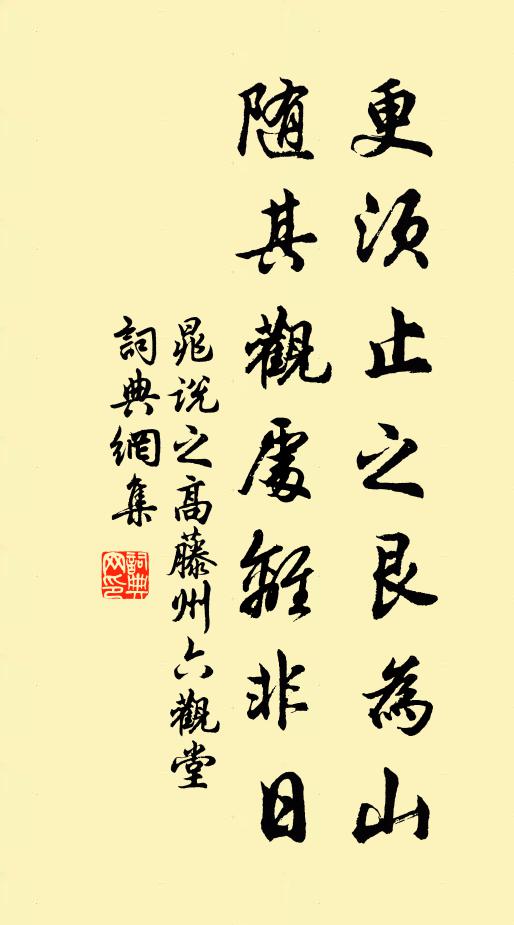 更須止之艮為山
隨其觀處離非日
晁說之高藤州六觀堂
詞典網集
詞典網印